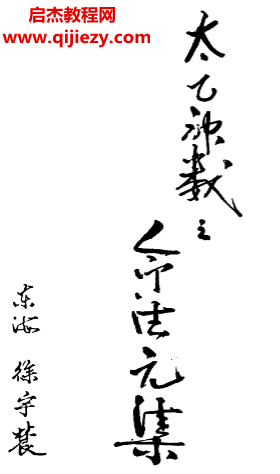 启杰教程网
www.qijiezy.com
太乙神数之
人命法元集
东海 徐宇辳